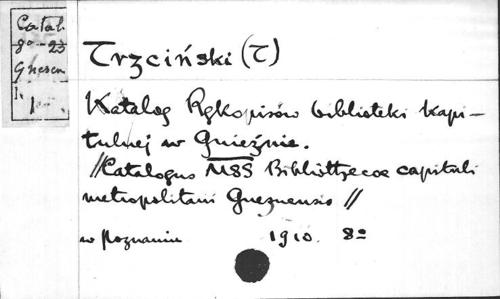 Catal.
8º-23
Gnesen
1.
Trzciński (T)
Katalog Rękopisów biblioteki kapi-
tulnej w Gnieźnie.
//Catalogus MSS Bibliothecae capituli
metropolitani Gneznensis//
w Poznaniu 1910. 8º